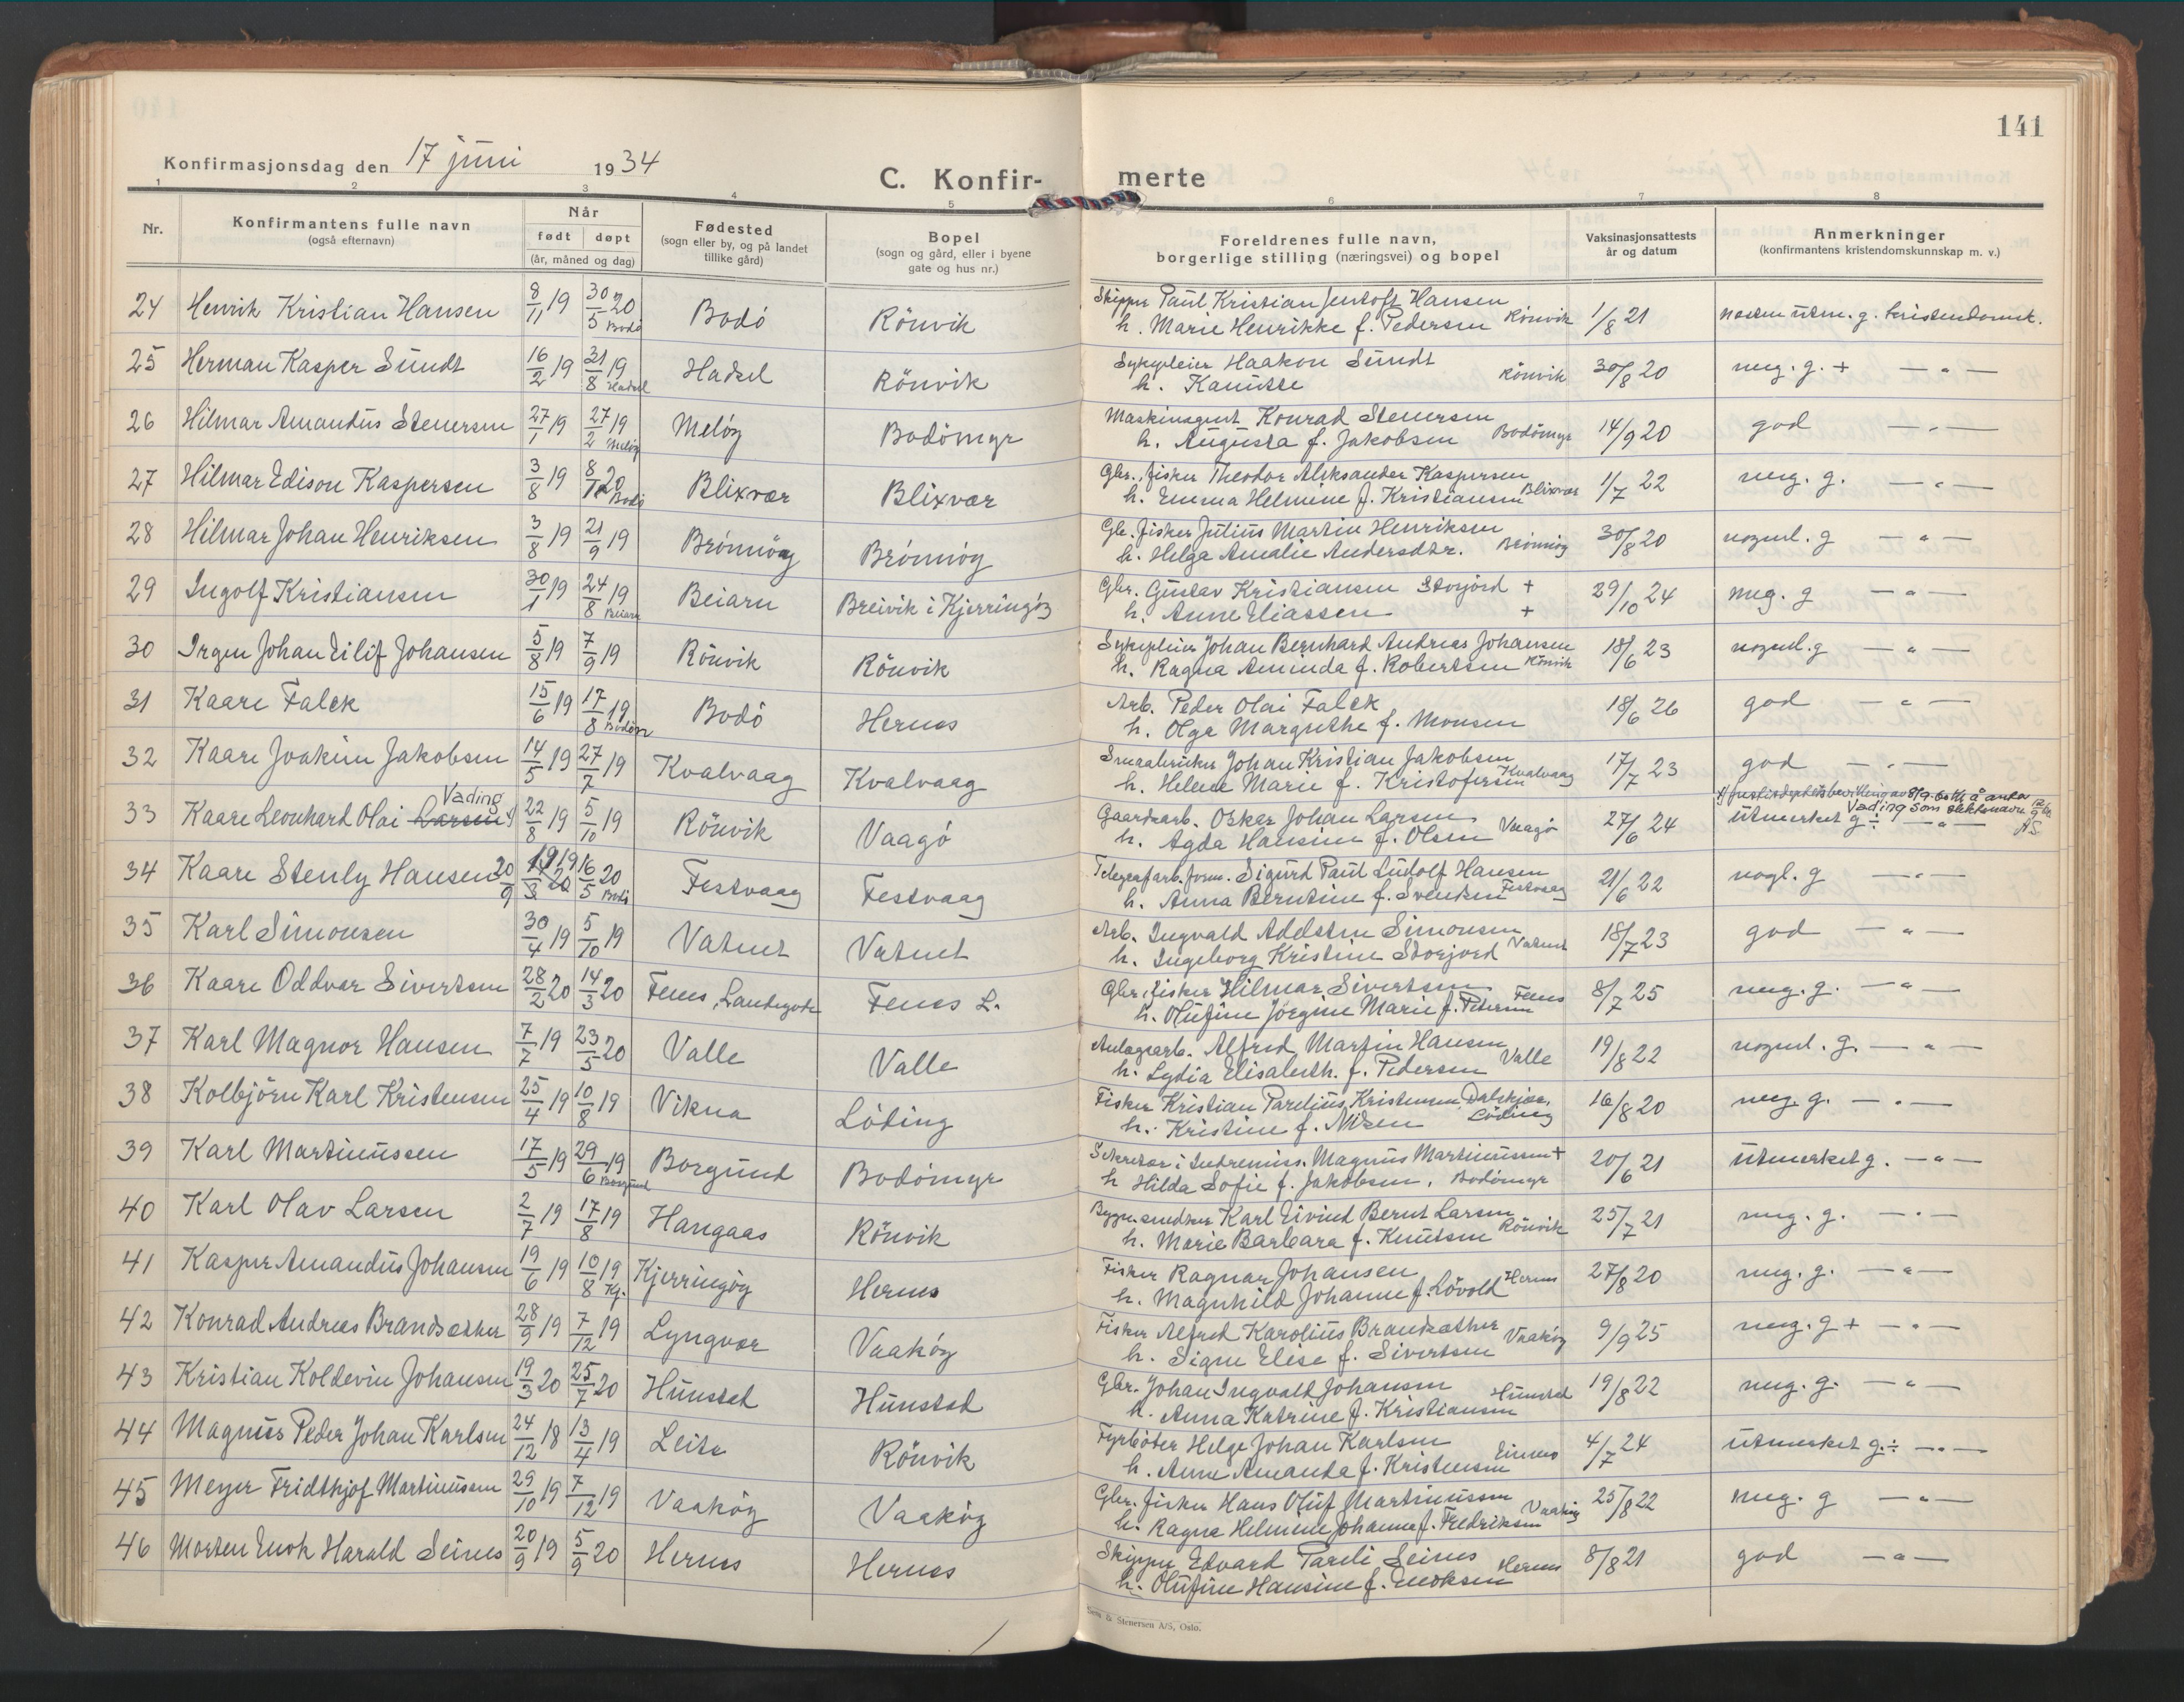 141
Konfirmasjonsdag den 17 juni 1934
C. Konfir- merte
1 2 3 4 5 6 7 8
Nr.
Konfirmantens fulle navn
(også efternavn)
Når
født døpt
(år, måned og dag)
Fødested
(sogn eller by, og på landet
tillike gård)
Bopel
(sogn og gård, eller i byene
gate og hus nr.)
Foreldrenes fulle navn,
borgerlige stilling (næringsvei) og bopel
Vaksinasjonsattests
år og datum
Anmerkninger
(konfirmantens kristendomskunnskap m. v.)
24 Henrik Kristian Hansen 8/11 19 30/5 20 Bodö Bodö Rönvik Skipper Paul Kristian Jentoft Hansen
h. Marie Henrikke f. Pedersen Rönvik 1/8 21 nesten utm. g. kristendomsk.
25 Herman Kasper Sundt 16/2 19 31/8 19 Hadsel Hadsel Rönvik Sykepleier Haakon Sundt
h. Kanutte Rönvik 30/8 20 meg. g. + — " —
26 Hilmar Amandus Stenersen 27/1 19 27/2 19 Melöy Melöy Bodömyr Maskinagent Konrad Stenersen
h. Augusta f. Jakobsen Bodömyr 14/9 20 god — " —
27 Hilmar Edison Kaspersen 3/8 19 8/10 20 Bodö Blixvær Blixvær Gbr. fisker Theodor Aleksander Kaspersen
h. Emma Helmine f. Kristiansen Blixvær 1/7 22 meg. g. — " —
28 Hilmar Johan Henriksen 3/8 19 21/9 19 Brönnöy Brönnöy Gbr. fisker Julius Martin Henriksen
h. Helga Amalie Andersdtr. Brönnöy 30/8 20 nogenl. g — " —
29 Ingolf Kristiansen 30/1 19 24/8 19 Beiarn Beiarn Breivik i Kjerringöy Gbr. Gustav Kristiansen Storjord +
h. Anne Eliassen + 29/10 24 meg. g — " —
30 Irgen Johan Eilif Johansen 5/8 19 7/9 19 Rönvik Rönvik Sykepleier Johan Bernhard Andreas Johansen
h. Ragna Aminda f. Robertsen Rönvik 18/6 23 nogenl. g — " —
31 Kaare Falck 15/6 19 17/8 19 Bodöen Bodö Hernes Arb. Peder Olai Falck
h. Olga Margrethe f. Monsen 18/6 26 god — " —
32 Kaare Joakim Jakobsen 14/5 19 27/7 19 Kvalvaag Kvalvaag Smaabruker Johan Kristian Jakobsen
h. Helene Marie f. Kristofersen Kvalvaag 17/7 23 god — " —
33 Kaare Leonhard Olai Larsen Vading 22/8 19 5/10 19 Rönvik Vaagö Gaardsarb. Oskar Johan Larsen
h. Agda Hansine f. Olsen Vaagö 27/6 24 av 8/9 å anta
Vading som slektsnavn
utmerket g ÷ — " —
34 Kaare Stenly Hansen 20/9 19 16/5 20 Bodö Festvaag Festvaag Telegrafarb. form. Sigurd Paul Ludolf Hansen
h. Anna Berntine f. Svendsen Festvaag 21/6 22 nogl. g — " —
35 Karl Simonsen 30/4 19 5/10 19 Vatnet Vatnet Arb. Ingvald Adelsten Simonsen
h. Ingeborg Kristine Storjord Vatnet 18/7 23 god — " —
36 Kaare Oddvar Sivertsen 28/2 20 14/3 20 Fenes, Landegode Fenes L. Gbr. fisker Hilmar Sivertsen
h. Olufine Jörgine Marie f. Petersen Fenes 8/7 25 meg. g. — " —
37 Karl Magnor Hansen 7/7 19 23/5 20 Valle Valle Anlegsarb. Alfred Martin Hansen
h. Lydia Elisabeth. f. Pedersen Valle 19/8 22 nogenl. g. — " —
38 Kolbjörn Karl Kristensen 25/4 19 10/8 19 Vikna Löding Fisker Kristian Parelius Kristensen,
h. Kristine f. Nilsen Löding 16/8 20 meg. g. — " —
39 Karl Martinussen 17/5 19 29/6 19 Borgund Borgund Bodömyr Sekretær i Indremiss. Magnus Martinussen +
h Hilda Sofie f. Jakobsen, Bodömyr 20/6 21 utmerket g. — " —
40 Karl Olav Larsen 2/7 19 17/8 19 Hangaas Rönvik Bygn.snedker Karl Eivind Bernt Larsen
h. Marie Barbara f. Knutsen Rönvik 25/7 21 meg. g. — " —
41 Kasper Amandus Johansen 19/6 19 10/8 19 Kj. Kjerringöy Hernes Fisker Ragnar Johansen
h. Magnhild Johanne f. Lövold Hernes 27/8 20 meg. g. — " —
42 Konrad Andreas Brandsæther 28/9 19 7/12 19 Lyngvær Vaaköy Fisker Alfred Karolius Brandsæther
h. Signe Elise f. Sivertsen Vaaköy 9/9 25 meg. g + — " —
43 Kristian Koldevin Johansen 19/3 20 25/7 20 Hunstad Hunstad Gbr. Johan Ingvald Johansen
h. Anna Katrine f. Kristiansen Hunstad 19/8 22 meg. g. — " —
44 Magnus Peder Johan Karlsen 24/12 18 13/4 19 Leite Rönvik Fyrböter Helge Johan Karlsen
h. Anne Amanda f. Kristensen 4/7 24 utmerket g. ÷ — " —
45 Meyer Fridthjof Martinussen 29/10 19 7/12 19 Vaaköy Vaaköy Gbr. fisker Hans Oluf Martinussen
h. Ragna Helmine Johanna f. Fredriksen Vaaköy 25/8 22 meg. g — " —
46 Morten Enok Harald Seines 20/9 19 5/9 20 Hernes Hernes Skipper Edvard Pareli Seines
h. Olufine Hansine f. Enoksen Hernes 8/8 21 god — " —
Sem & Stenersen A/S, Oslo.